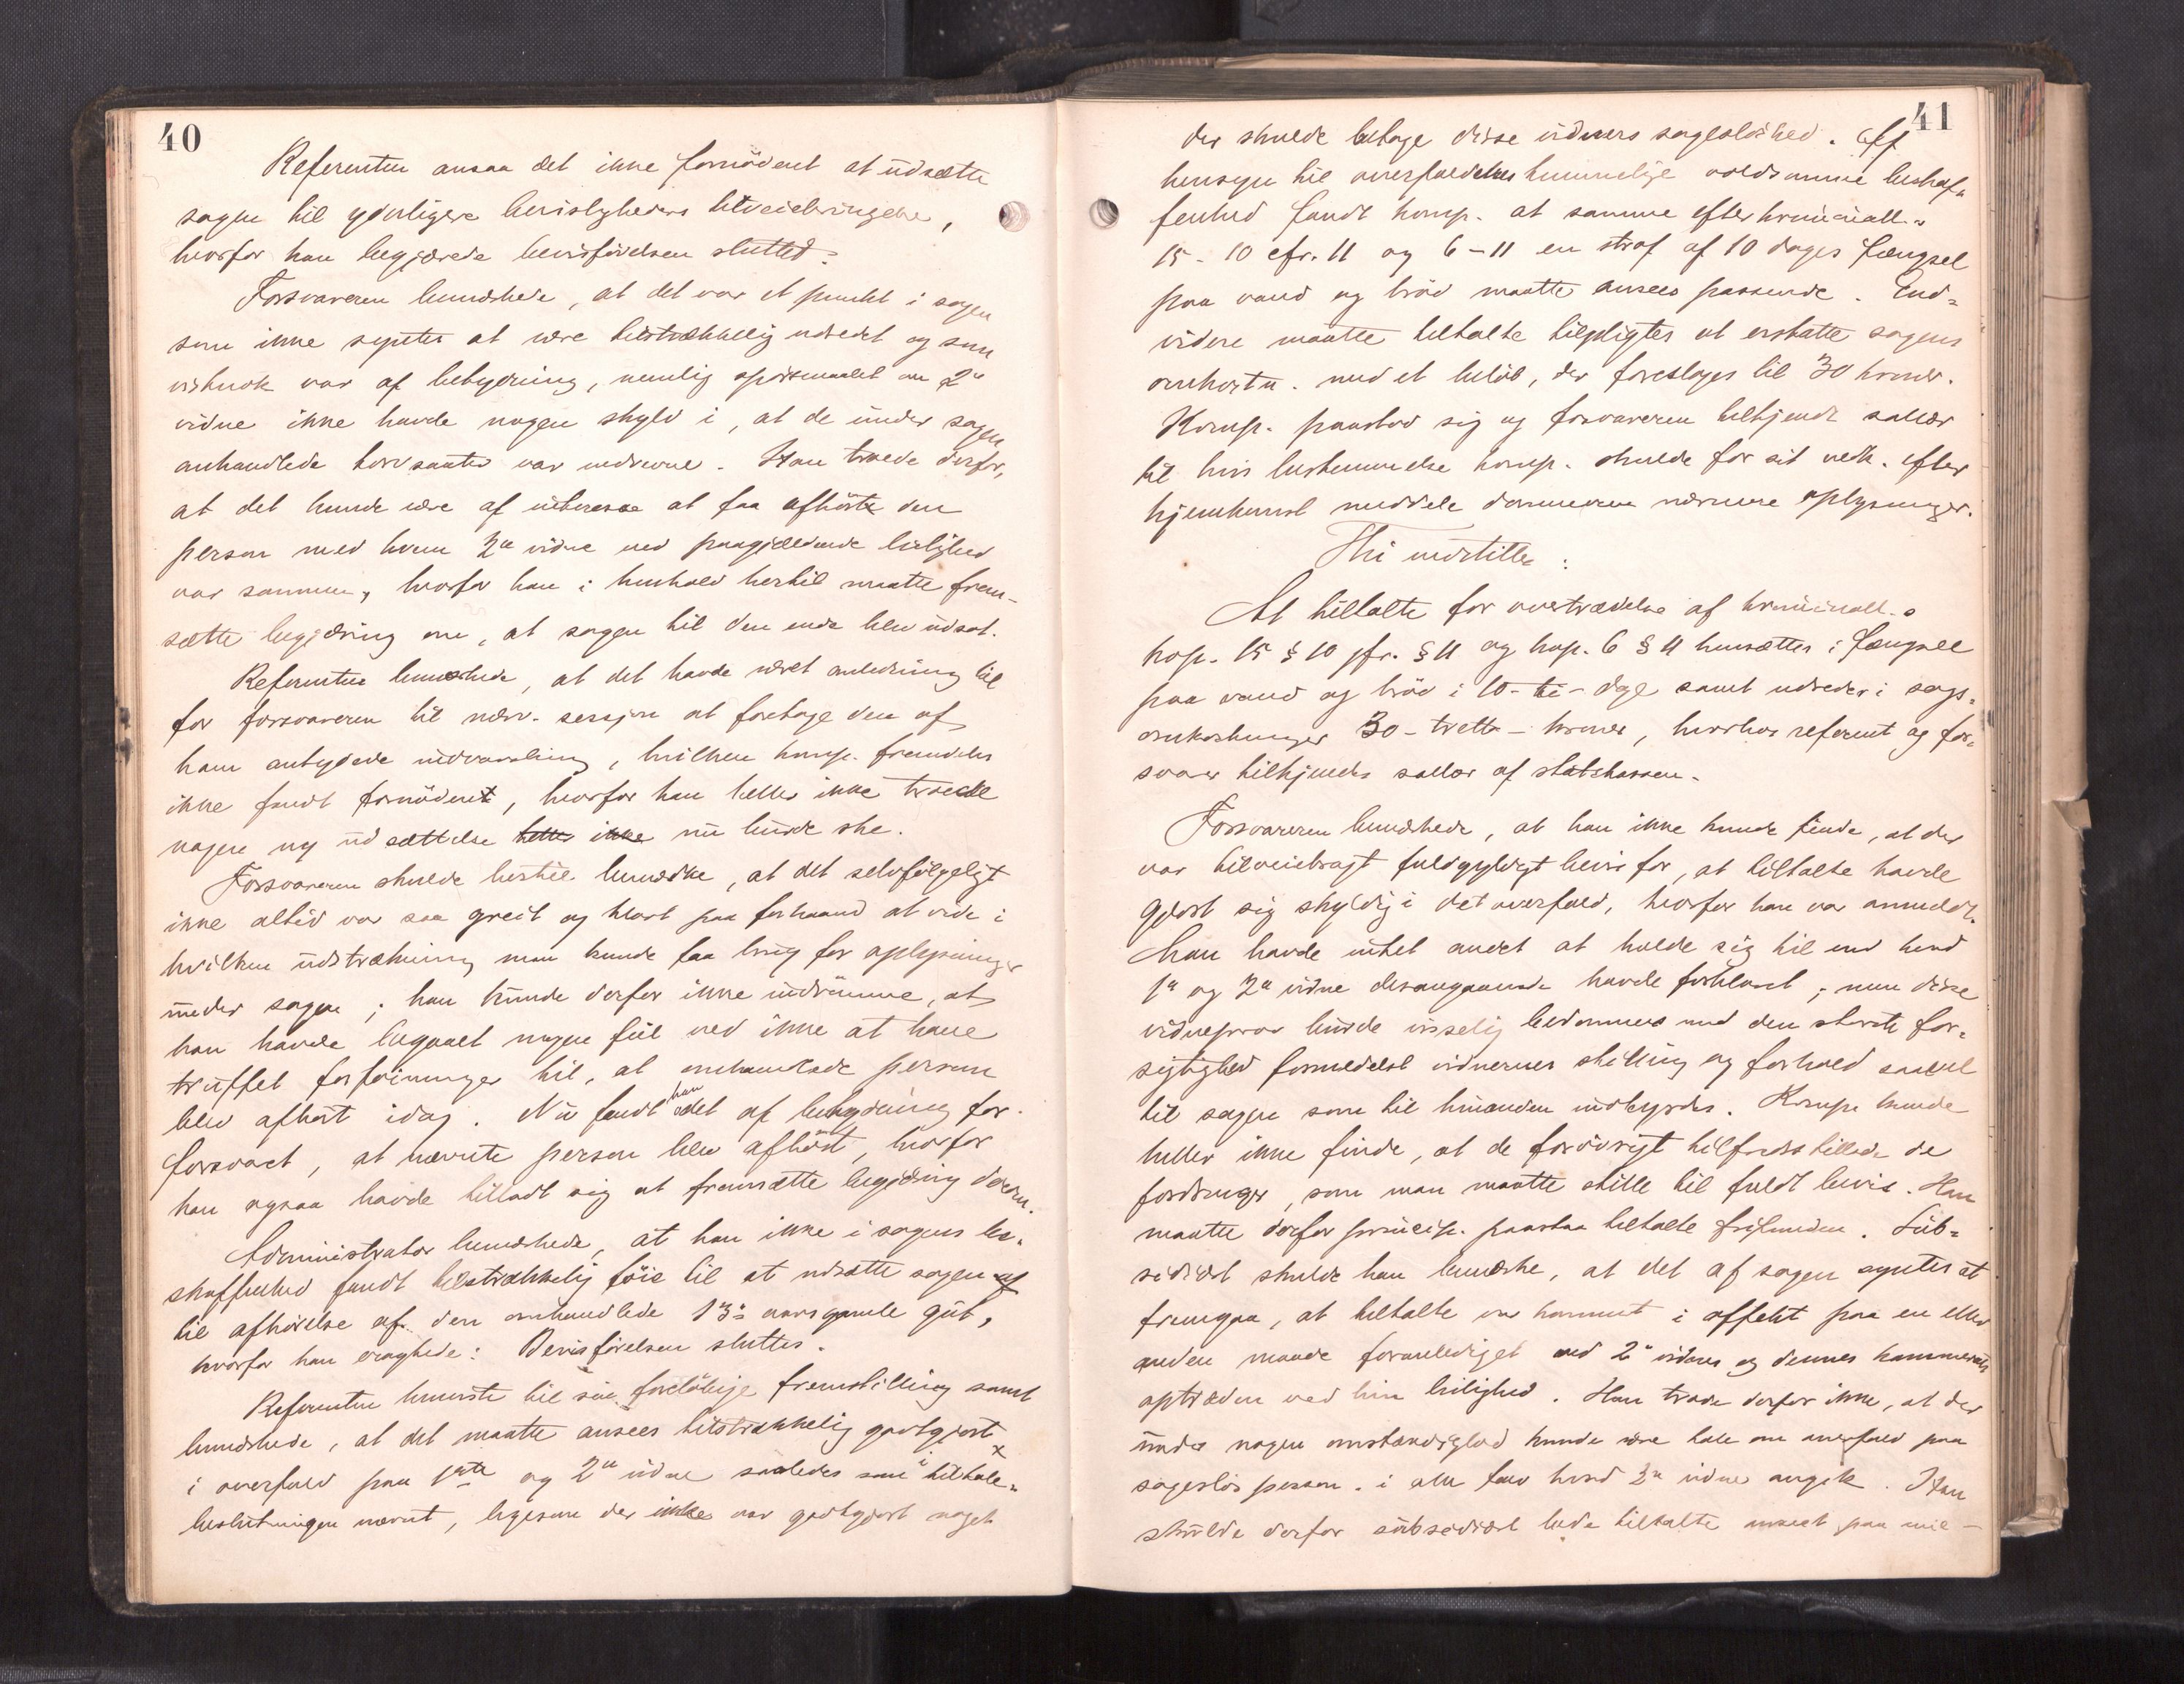 40
Referenten ansaa det ikke fornödent at udsætte
sagen til yderligere bevisligheders tilveiebringelse,
hvorfor han begjærede bevisförelsen sluttet.
Forsvareren bemærkede, at det var et punkt i sagen
som ikke syntes at være tilstrækkelig udredet og som
vistnok var af betydning, nemlig spörsmaalet om 2det
vidne ikke havde nogen skyld i, at de under sagen
anhandlede var nedrevne. Han troede derfor,
at det kunde være af interesse at faa afhört den
person med hvem 2det vidne ved paagjældende leilighed
var sammen, hvorfor han i henhold hertil maatte frem-
sætte begjæring om, at sagen til den ende blev udsat.
Referenten bemærkede, at det havde været anledning til
for forsvareren til nærv. session at foretage den af
ham antydede indvarsling, hvilken komp. fremdeles
ikke fandt fornödent, hvorfor han heller ikke troede
nogen ny udsættelse heller ikke nu burde ske.
Forsvareren skulde hertil bemærke, at det selvfölgeligt
ikke altid var saa greit og klart paa forhaand at vide i
hvilken udstrækning man kunde faa brug for oplysninger
under sagen; han kunde derfor ikke indrömme, at
han havde begaaet nogen feil ved ikke at have
truffet forföininger til, at omhandlede person
blev afhört idag. Nu fandt han det af betydning for
forsvaret, at nævnte person blev afhört, hvorfor
han ogsaa havde tilladt sig at fremsætte begjæring derom.
Administrator bemærkede, at han ikke i sagens be-
skaffenhed fandt tilstrækkelig föie til at udsætte sagen af
til afhörelse af den omhandlede 13 aars gamle gut,
hvorfor han eragtede: Bevisförelsen sluttes.
Referenten henviste til sin foreløbige fremstilling samt
bemærkede, at det maatte ansees tilstrækkelig godtgjort
i overfald paa 1ste og 2det vidne saaledes som i tiltale-
beslutningen nævnt, ligesom der ikke var godtgjort noget
41
der skulde betage disse vidners sagesløshed. Af
hensyn til overfaldets temmelig voldsomme beskaf-
fenhed fandt komp. at samme efter kriminall.s
15-10 cfr. 11 og 6-11 en straf af 10 dages fængsel
paa vand og bröd maatte ansees passende. End-
videre maatte tiltalte tilpligtes at erstatte sagens
omkostn. med et belöb, der foreslages til 30 kroner.
Komp. paastod sig og forsvareren tilkjendt salær
til hvis bestemmelse komp. skulde for sit vedk. efter
hjemkomst meddele dommeren nærmere oplysninger.
Thi indstilles:
At tiltalte for overtrædelse af kriminall.s
kap. 15 § 10 jfr. § 11 og kap. 6 § 11 hensættes i fængsel
paa vand og bröd i 10-ti-dage samt udreder i sags-
omkostninger 30-tretti-kroner, hvorhos referent og for-
svarer tilkjendes salær af statskassen.
Forsvareren bemærkede, at han ikke kunde finde, at der
var tilveiebragt fuldgyldigt bevis for, at tiltalte havde
gjort sig skyldig i det overfald, hvorfor han var anmeldt.
Man havde intet andet at holde sig til end hvad
1ste og 2det vidne desangaaende havde forklaret; men disse
vidneprov burde visselig bedømmes med den störste for-
sigtighed formedelst vidnernes stilling og forhold saavel
til sagen som til hinanden indbyrdes. Komp. kunde
heller ikke finde, at de forövrigt tilfredsstillede de
fordringer, som man maatte stille til fuldt bevis. Han
maatte derfor principt. paastaa tiltalte frifunden. Sub-
sidiært skulde han bemærke, at det af sagen syntes at
fremgaa, at tiltalte var kommet i affekt paa en eller
anden maade foranlediget ved 2det vidnes og dennes kammerats
optræden ved hin leilighed. Han troede derfor ikke, at der
under nogen omstændighed kunde være tale om overfald paa
sageslös person, i alle fald hvad 2det vidne angik. Han
skulde derfor subsidiært bede tiltalte anseet paa mil-